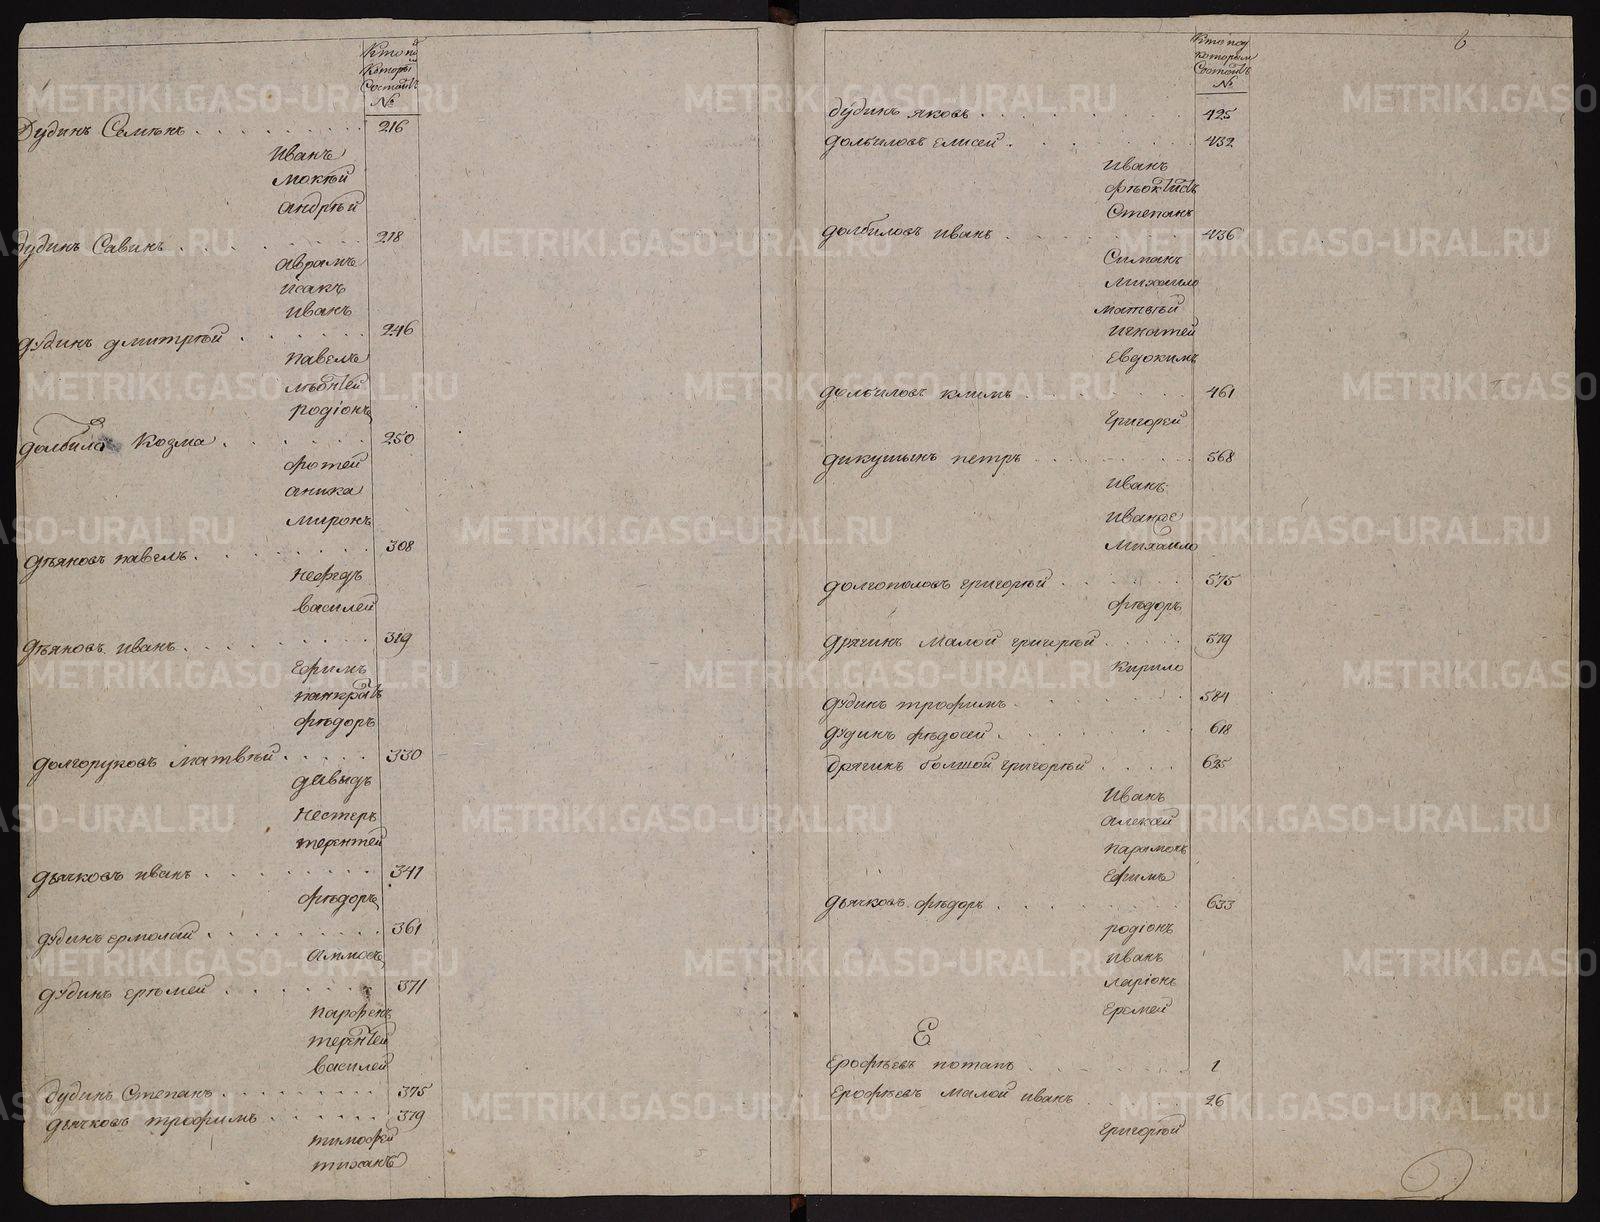 Кто по
Которы
Состоитъ
№
Дудинъ Семѣнъ . . . . . . . . . 216
Иванъ
мокѣй
андрѣй
дудинъ Савинъ . . . . . . . . 218
аврамъ
исакъ
иванъ
дудинъ дмитрѣй . . . . . . 246
павелъ
родіонъ
долбило Козма . . . . . . 250
фотей
аника
миронъ
дѣяновъ павелъ . . . . . . . . 308
нефедъ
василей
дѣяновъ иванъ . . . . . . . . 319
Ефимъ
панкратъ
фѣдоръ
долгоруковъ матвѣй . . . . . 330
давыдъ
нестеръ
терентей
дьячковъ иванъ . . . . . . . . 341
фѣдоръ
дудинъ ермолай . . . . . . . . 361
аммосъ
дудинъ ерѣмей . . . . . . . 371
парфенъ
терентей
василей
дудинъ Степанъ . . . . . . . . 375
дьячковъ трофимъ . . . . . . 379
тимофей
тиханъ
6
Кто под
которым
Состоитъ
№
дудинъ яковъ . . . . . . . . 425
долбиловъ елисей . . . . . . . 432
Иванъ
фѣоктистъ
Степанъ
долбиловъ иванъ . . . . . . . 436
Симанъ
михаило
матвѣй
игнатей
Евдокимъ
долбиловъ климъ . . . . . . . 461
григорей
дикушынъ петръ . . . . . . . 568
Иванъ
Иванъ
михаило
долгополовъ григорѣй . . . . . 575
фѣдоръ
дрягинъ малой григорѣй . . . . 579
кирило
дудинъ трофимъ . . . . . . . 584
дудинъ фѣдосей . . . . . . . . 618
дрягинъ болшой григорѣй . . . . 625
Иванъ
алексей
парамонъ
Ефимъ
дьячковъ фѣдоръ . . . . . . . . 633
родіонъ
иванъ
ларіонъ
Еремей
Е
Ерофѣевъ потапъ . . . . . . . 1
Ерофѣевъ малой иванъ . . . . . 26
григорѣй
METRIKI.GASO-URAL.RU